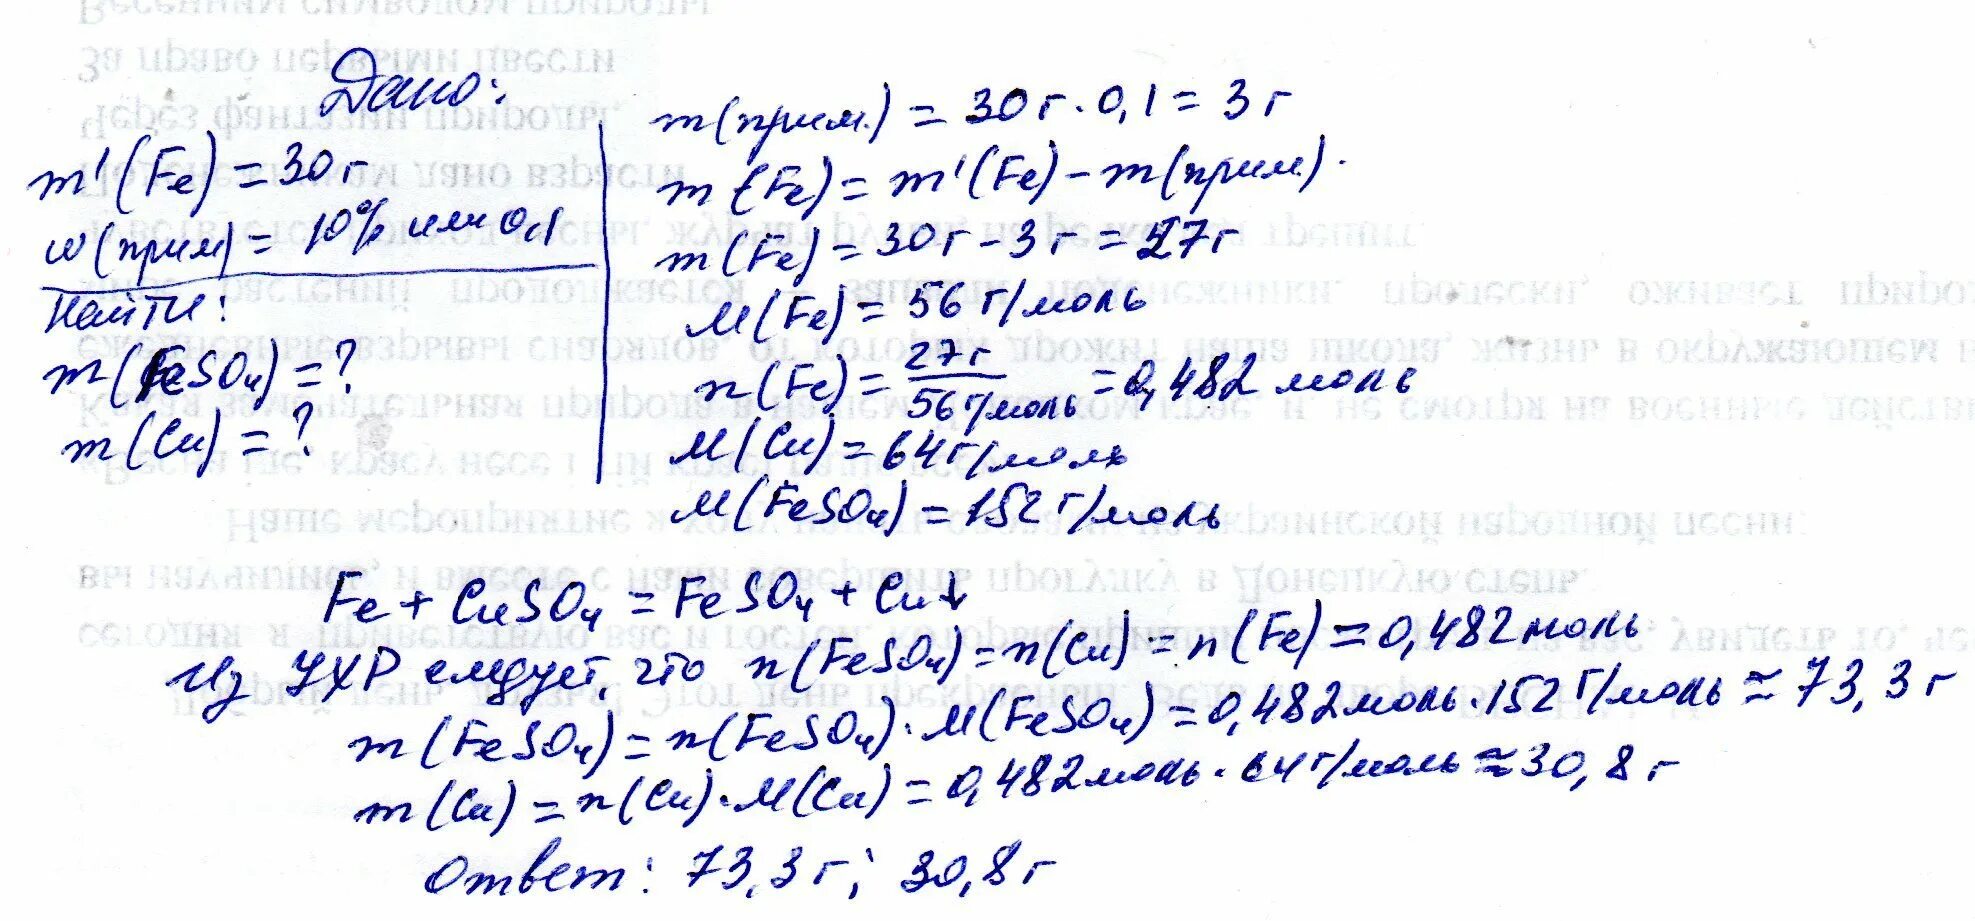 Дано:
m'(Fe) = 30 г
w(прим) = 10% или 0,1
Найти:
m(FeSO₄) = ?
m(Cu) = ?
m(прим.) = 30 г · 0,1 = 3 г
m(Fe) = m'(Fe) – m(прим).
m(Fe) = 30 г – 3 г = 27 г
M(Fe) = 56 г/моль
n(Fe) = 27 г / 56 г/моль = 0,482 моль
M(Cu) = 64 г/моль
M(FeSO₄) = 152 г/моль
Fe + CuSO₄ = FeSO₄ + Cu↓
Из УХР следует, что n(FeSO₄) = n(Cu) = n(Fe) = 0,482 моль
m(FeSO₄) = n(FeSO₄) · M(FeSO₄) = 0,482 моль · 152 г/моль ≈ 73,3 г
m(Cu) = n(Cu) · M(Cu) = 0,482 моль · 64 г/моль ≈ 30,8 г
Ответ: 73,3 г; 30,8 г